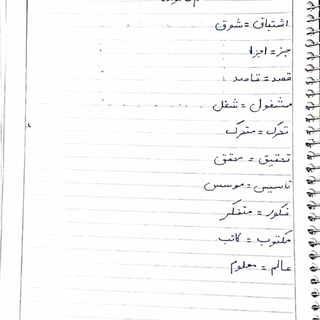 اشتیاق = شوق
جز = اجزا
قصد = قاصد
مشغول = شغل
تحرک = متحرک
تحقیق = محقق
تاسیس = موسس
فکور = متفکر
مکتوب = کاتب
عالم = معلوم